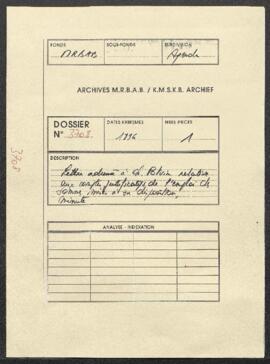 FONDS
SOUS-FONDS
SUBDIVISION
M.R.B.A.B.
ARCHIVES M.R.B.A.B. / K.M.S.K.B. ARCHIEF
DOSSIER
N° 3708
DATES EXTREMES
1996
NBRE PIECES
1
DESCRIPTION
Lettre adressée à relative
aux comptes justificatifs de l'emploi de
sommes mises à sa disposition,
minute
ANALYSE - INDEXATION
3708